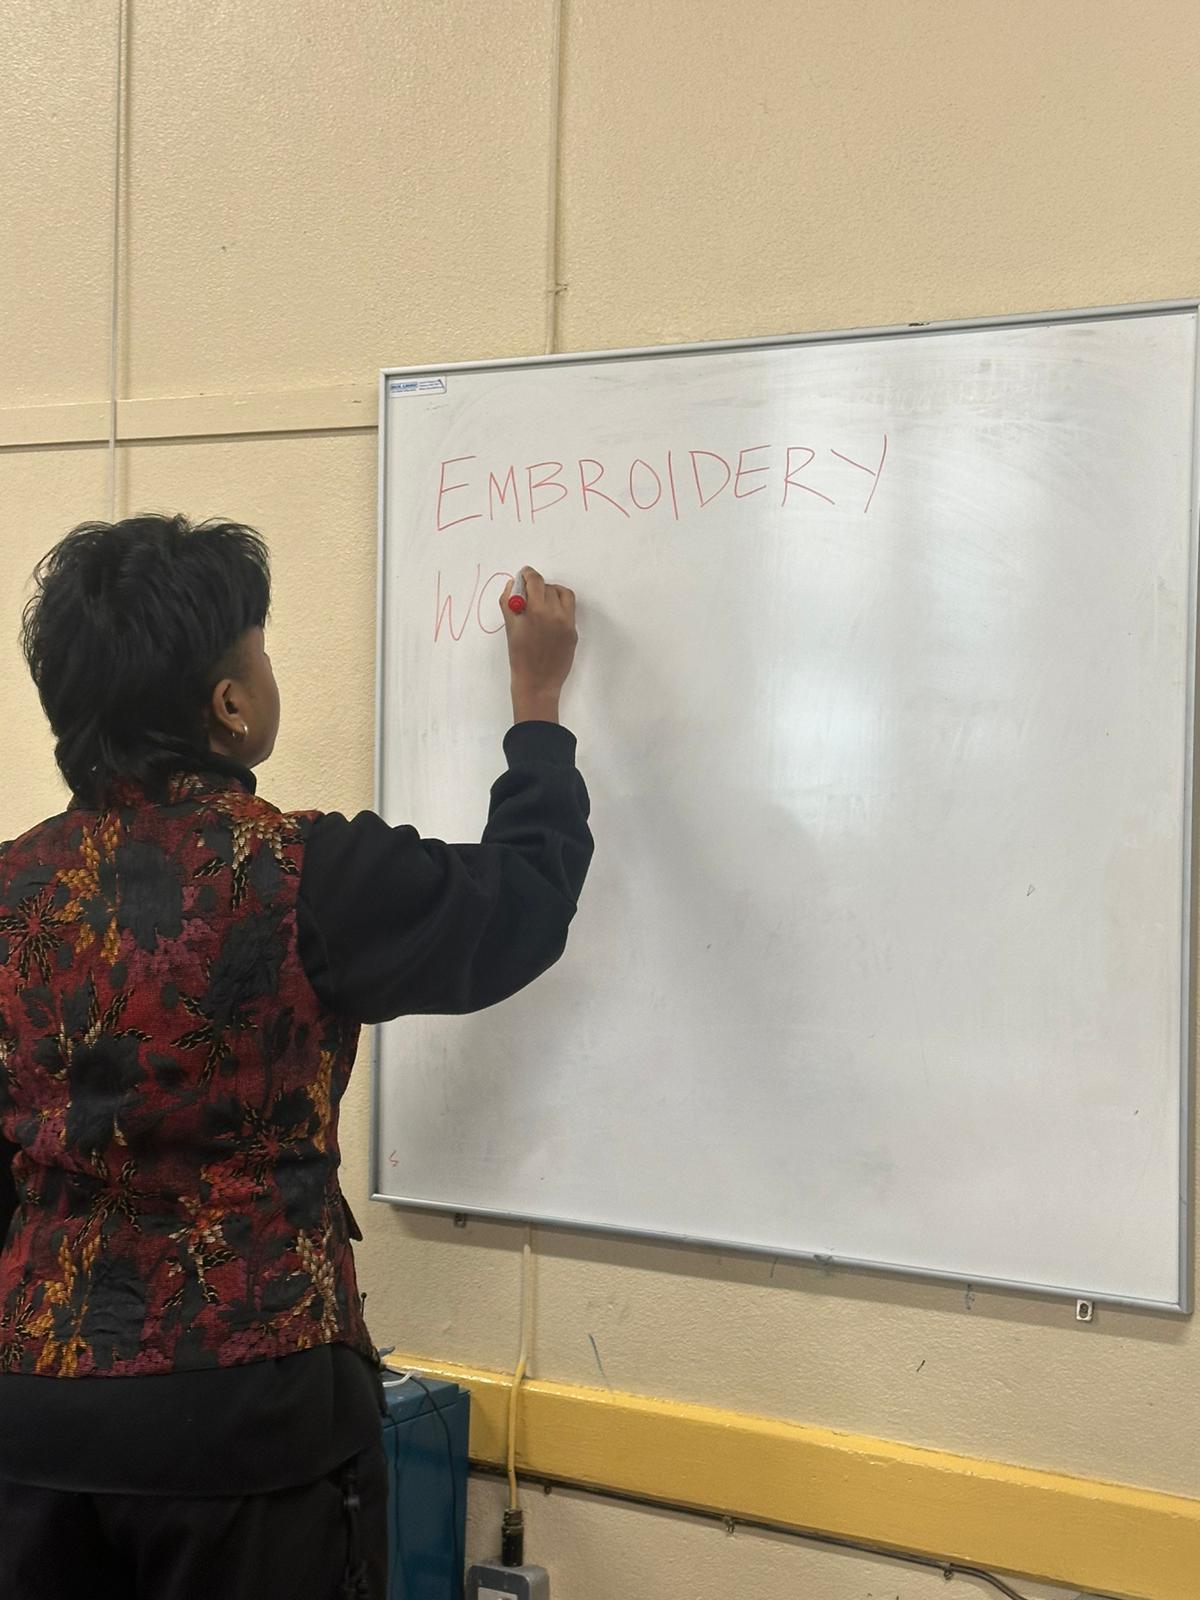 EMBROIDERY
WO